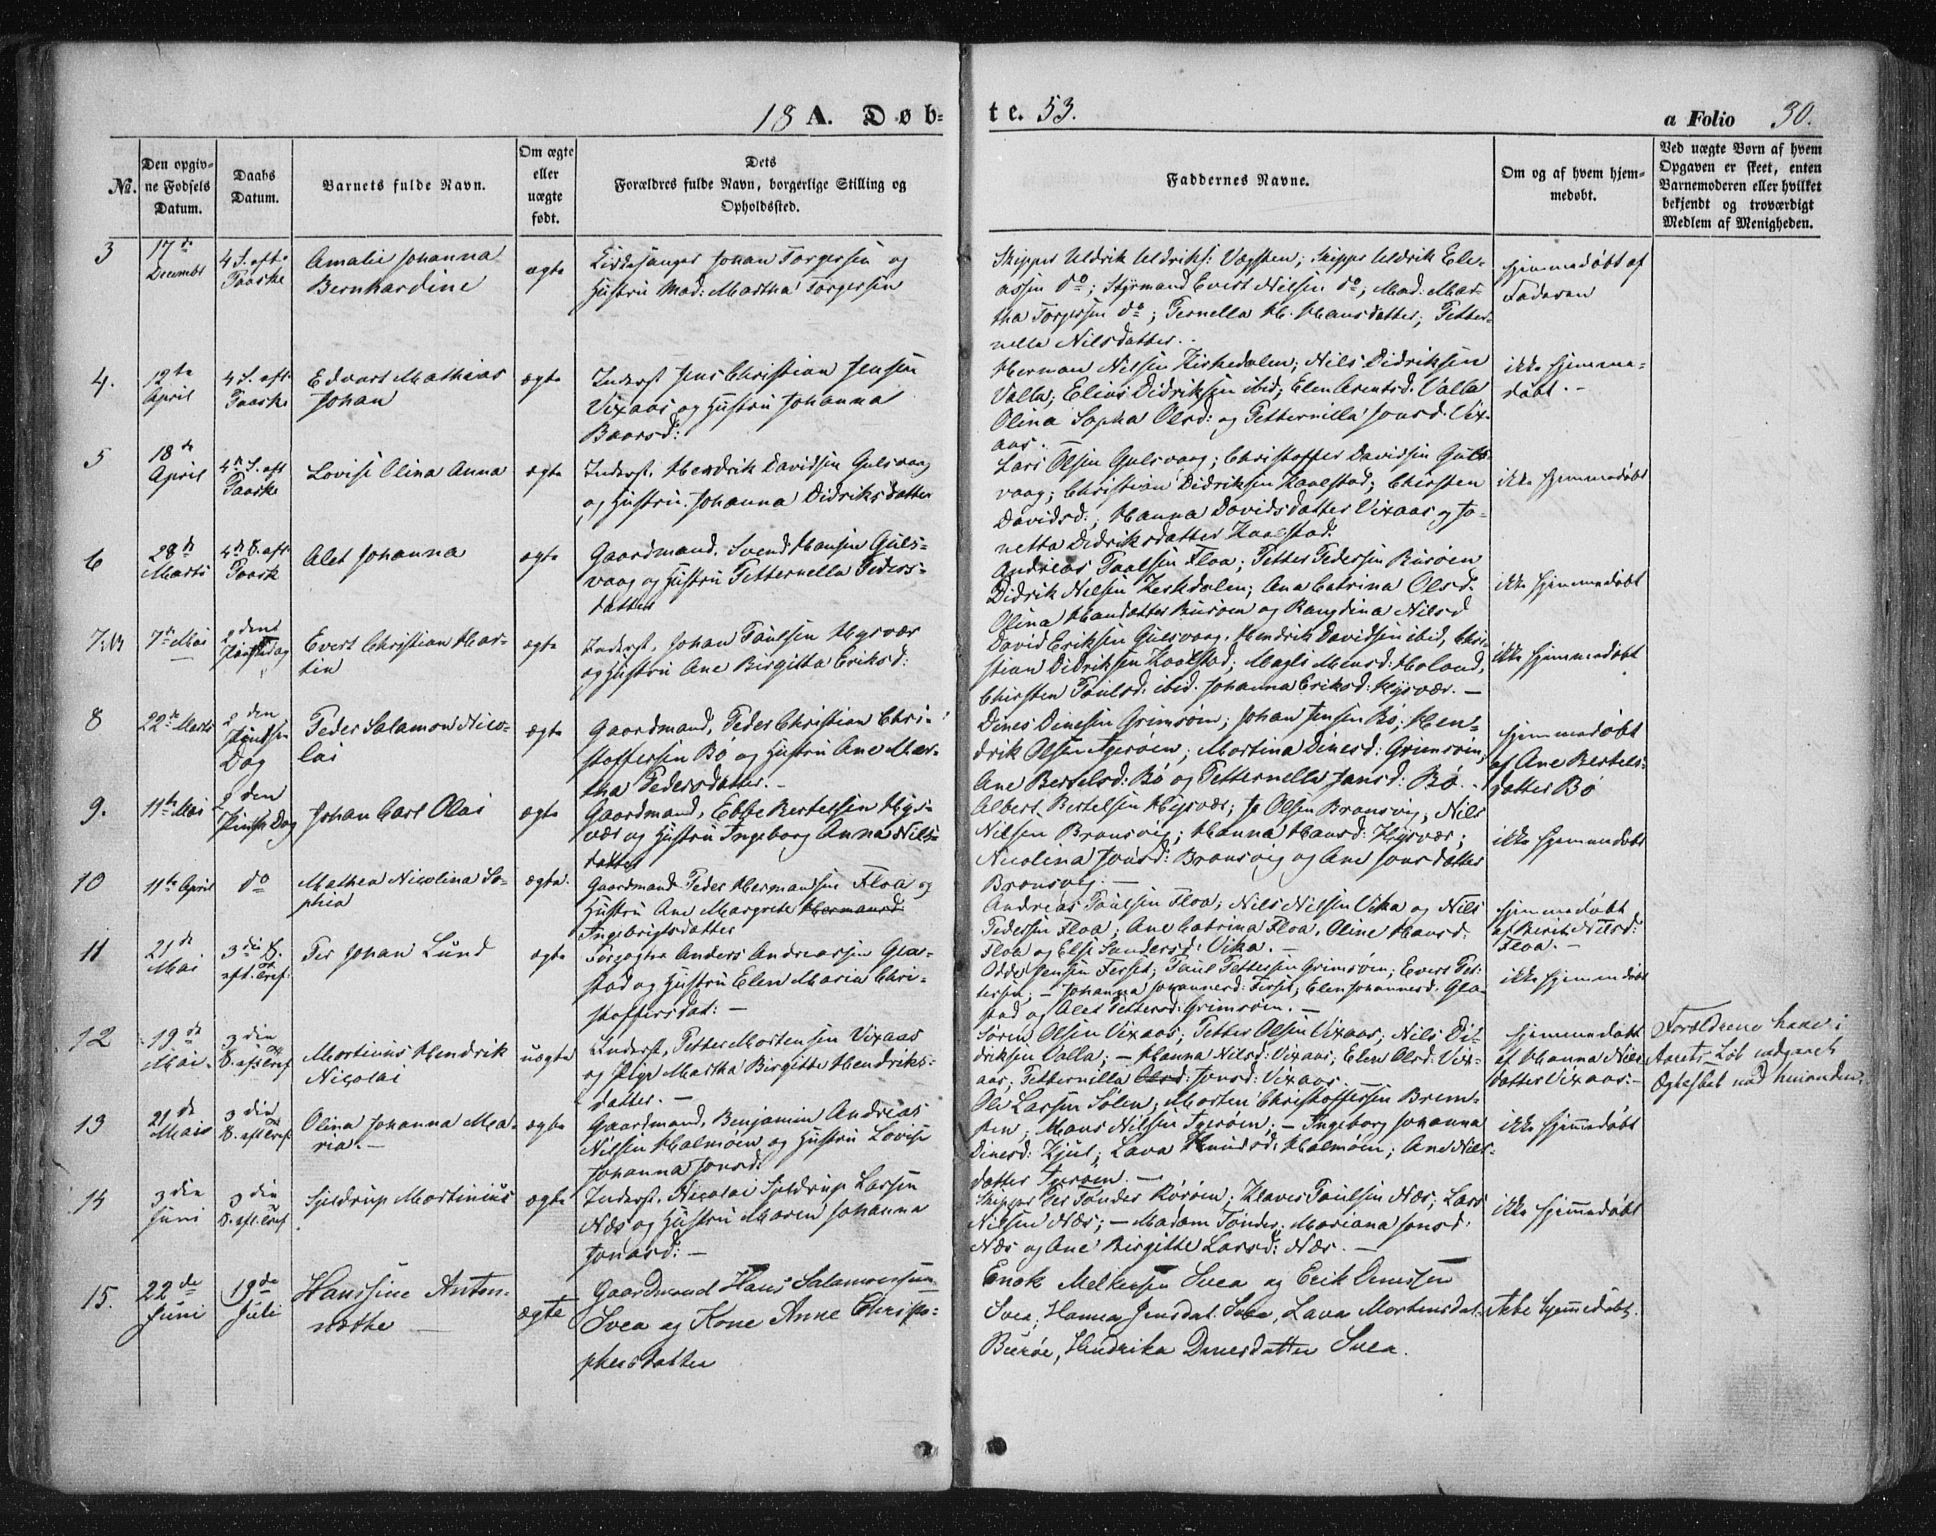 18 A. Døb-
te. 53.
a Folio 30.
№.
Den opgiv-
ne Fødsels
Datum.
Daabs
Datum.
Barnets fulde Navn.
Om ægte
eller
uægte
født.
Dets
Forældres fulde Navn, borgerlige Stilling og
Opholdssted.
Faddernes Navne.
Om og af hvem hjem-
medøbt.
Ved uægte Børn af hvem
Opgaven er skeet, enten
Barnemoderen eller hvilket
bekjendt og troværdigt
Medlem af Menigheden.
3
17de
Decembr
4 S. eft.
Paaske
Amalie Johanna
Bernhardine
ægte
Johan Torgersen og
Hustru Mad: Martha Torgersen
Skipper Uldrik Uldriks: Skipper Uldrik Ele-
assen do; Styrmand Evert Nilsen do; Mad: Mar-
tha Torgersen do; Pernella H. Hansdatter; Petter-
nella Nilsdatter.
hjemmedøbt af
Faderen
4.
12te
April
4 S. eft.
Paaske
Edvart Mathias
Johan
ægte
Inderst Jens Christian Jensen
Vixaas og Hustru Johanna
Baarsd:
Herman Nilsen Kirkedalen; Nils Didriksen
Valla; Elias Didriksen ibid; Elen Arentsd. Valla
Olina Sophia Olsd: og Petternilla Jonsd. Vix-
aas.
ikke hjemme-
døbt. -
5
18de
April
4de S. eft
Paaske
Lovise Olina Anna
ægte
Inderst. Hendrik Davidsen Gulsvaag
og Hustru Johanna Didriksdatter
Lars Olsen Gulsvaag; Christoffer Davidsen Guls-
vaag; Christian Didriksen Kaalstad; Chirsten
Davidsd.; Hanna Davidsdatter Vixaas og Jo-
netta Didriksdatter Kaalstad.
ikke hjemmedøbt
6
28de
Marts
4de S. eft
Paask
Alet Johanna
ægte
Gaardmand, Svend Hansen Guls-
vaag og Hustru Petternella Peders-
datter
Andreas Paulsen Floa; Petter Pedersen Burøen
Didrik Nilsen Keskdalen; Ana Catrina Olsd.
Olina Hansdatter Burøen og Rangdina Nilsd
ikke hjemmedøbt
7.
7de Mai
2den
Pintsdag
Evert Christian Mar-
tin
ægte
Inderst, Johan Paulsen Hysvær
og Hustru Ane Birgitta Eriksd:
David Eriksen Gulsvaag, Hendrik Davidsen ibid, Chri-
stian Didriksen Kaalstad; Magli Mensd: Holand,
Chirsten Paulsd. ibid. Johanna Eriksd: Hysvær. -
ikke hjemmedøbt
8
22de Marts
2den
Pintse
Dag
Peder Salamon Nico-
lai
ægte
Gaardmand, Peder Christian Chri-
stoffersen Bø og Hustru Ane Mar-
tha Pedersdatter. -
Dines Dinesen Grimsøen; Johan Jensen Bø; Hen-
drik Olsen Igerøen; Martina Dinesd: Grimsøen,
Ane Bertelsd: Bø og Petternella Jansd: Bø. -
hjemmedøbt
af Ane Bertels-
datter Bø
9.
11te Mai
2den
Pintse Dag
Johan Carl Olai
ægte
Gaardmand, Ebbe Bertelsen Hys-
vær og Hustru Ingeborg Anna Nils-
datter
Albert Bertelsen Hysvær; Jo Olsen Bransvig, Nils
Nilsen Bransvig; Hanna Hansd: Hysvær;
Nicolina Jonsd: Bransvig og Ane Jonsdatter
Bransvig. -
ikke hjemmedøbt
10
11te April
do
Mathea Nicolina So-
phia
ægte.
Gaardmand Peder Hermansen Floa og
Hustru Ane Margrete Hermansd:
Ingebrigtsdatter
Andreas Paulsen Floa; Nils Nilsen Vika og Nils
Pedersen Floa; Ane Catrina Floa, Oline Hansd:
Floa og Else Sandersd: Vika. -
hjemmedøbt
af Berit Nilsd:
Floa. -
11
21de
Mai
3die S.
eft. Tref.
Per Johan Lund
ægte
Forpagter Anders Andreassen Gla-
stad og Hustru Elen Maria Chri-
stoffersdat: -
Odde Jensen Forset; Paul Pettersen Grimsøen; Evert Pet-
tersen; - Johanna Johannesd: Forset, Elen Johannesd: Gla-
stad og Alet Pettersd: Grimsøen. -
ikke hjemmedøbt
12
19de
Mai.
3die
S. eft. Tref
Martinus Hendrik
Nicolai
uægte
Inderst, Petter Mortensen Vixaas
og Pige Martha Birgitte Hendriks-
datter. -
Søren Olsen Vixaas; Petter Olsen Vixaas; Nils Did-
riksen Valla; - Hanna Nilsd: Vixaas; Elen Olsd: Vix-
aas; Petternilla Olsd: Jonsd: Vixaas.
hjemmedøbt
af Hanna Nils-
datter Vixaas. -
Forældrene have i
Aarets Løb indgaaet
Ægteskab med hinanden.
13
21de
Mai
3die
S. eft. Tref
Olina Johanna Ma-
ria. -
ægte
Gaardmand, Benjamin Andreas
Nilsen Halmøen og Hustru Lovise
Johanna Jonsd:
Ole Larsen Sølen; Morten Christoffersen Brem-
sten; Hans Nilsen Igerøen; - Ingeborg Johanna
Dinesd: Kjul; Lava Knudsd: Halmøen; Ane Nils-
datter Igerøen. -
ikke hjemmedøbt
14
3die
Juni
3die
S. eft. Tref
Hjeldrup Martinius
ægte
Inderst. Nicolai Hjeldrup Larsen
Næs og Hustru Maren Johanna
Jonasd: -
Skipper Per Tønder Rørøen; Klaves Paulsen Næs; Lars
Nilsen Næs; - Madam Tønder; Mariana Jonsd.
Næs og Ane Birgitte Larsd: Næs. -
ikke hjemmedøbt
15.
22de
Juni
19de
Juli
Hanssine Anton-
nethe -
ægte
Gaardmand Hans Salamonsen
Svea og Kone Anne Christo-
phersdatter
Enok Melkersen Svea og Erik Dinessen
Svea, Hanna Jensdat. Svea, Lava Mortensdat.
Burøe, Hendrika Dinesdatter Svea.
Ikke hjemmedøbt.